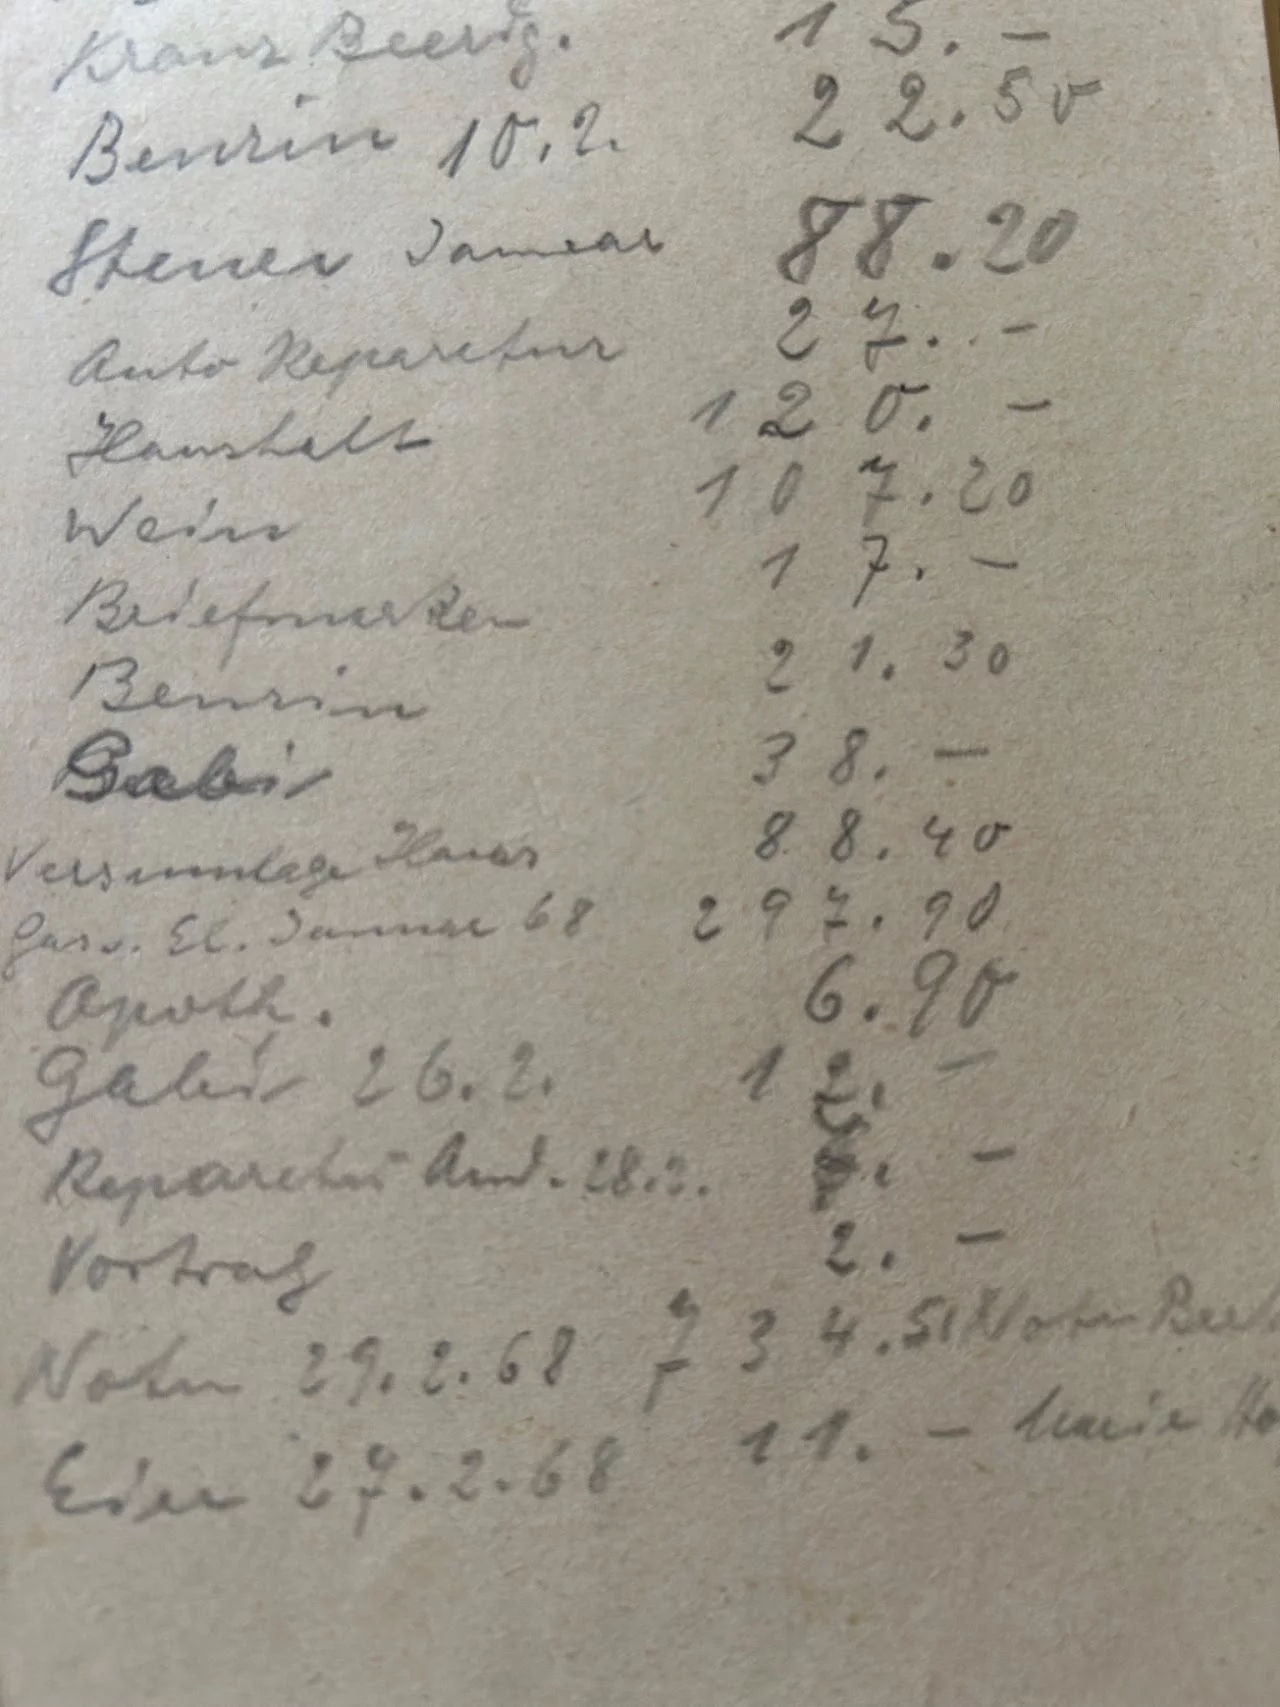 Kranz Beerdg. 15.-
Benzin 10.2. 22.50
Steuer Januar 88.20
Auto Reparatur 27.-
Haushalt 120.-
Wein 107.20
Briefmarken 17.-
Benzin 21.30
Gabi 38.-
Versumlage Haus 88.40
Gas u. El. Januar 68 297.90
Apoth. 6.90
Gabi 26.2. 12.-
Reparatur 28.2. -
Vortrag 2.-
Notar 29.2.68 734.51 Notar
Eier 27.2.68 11.-